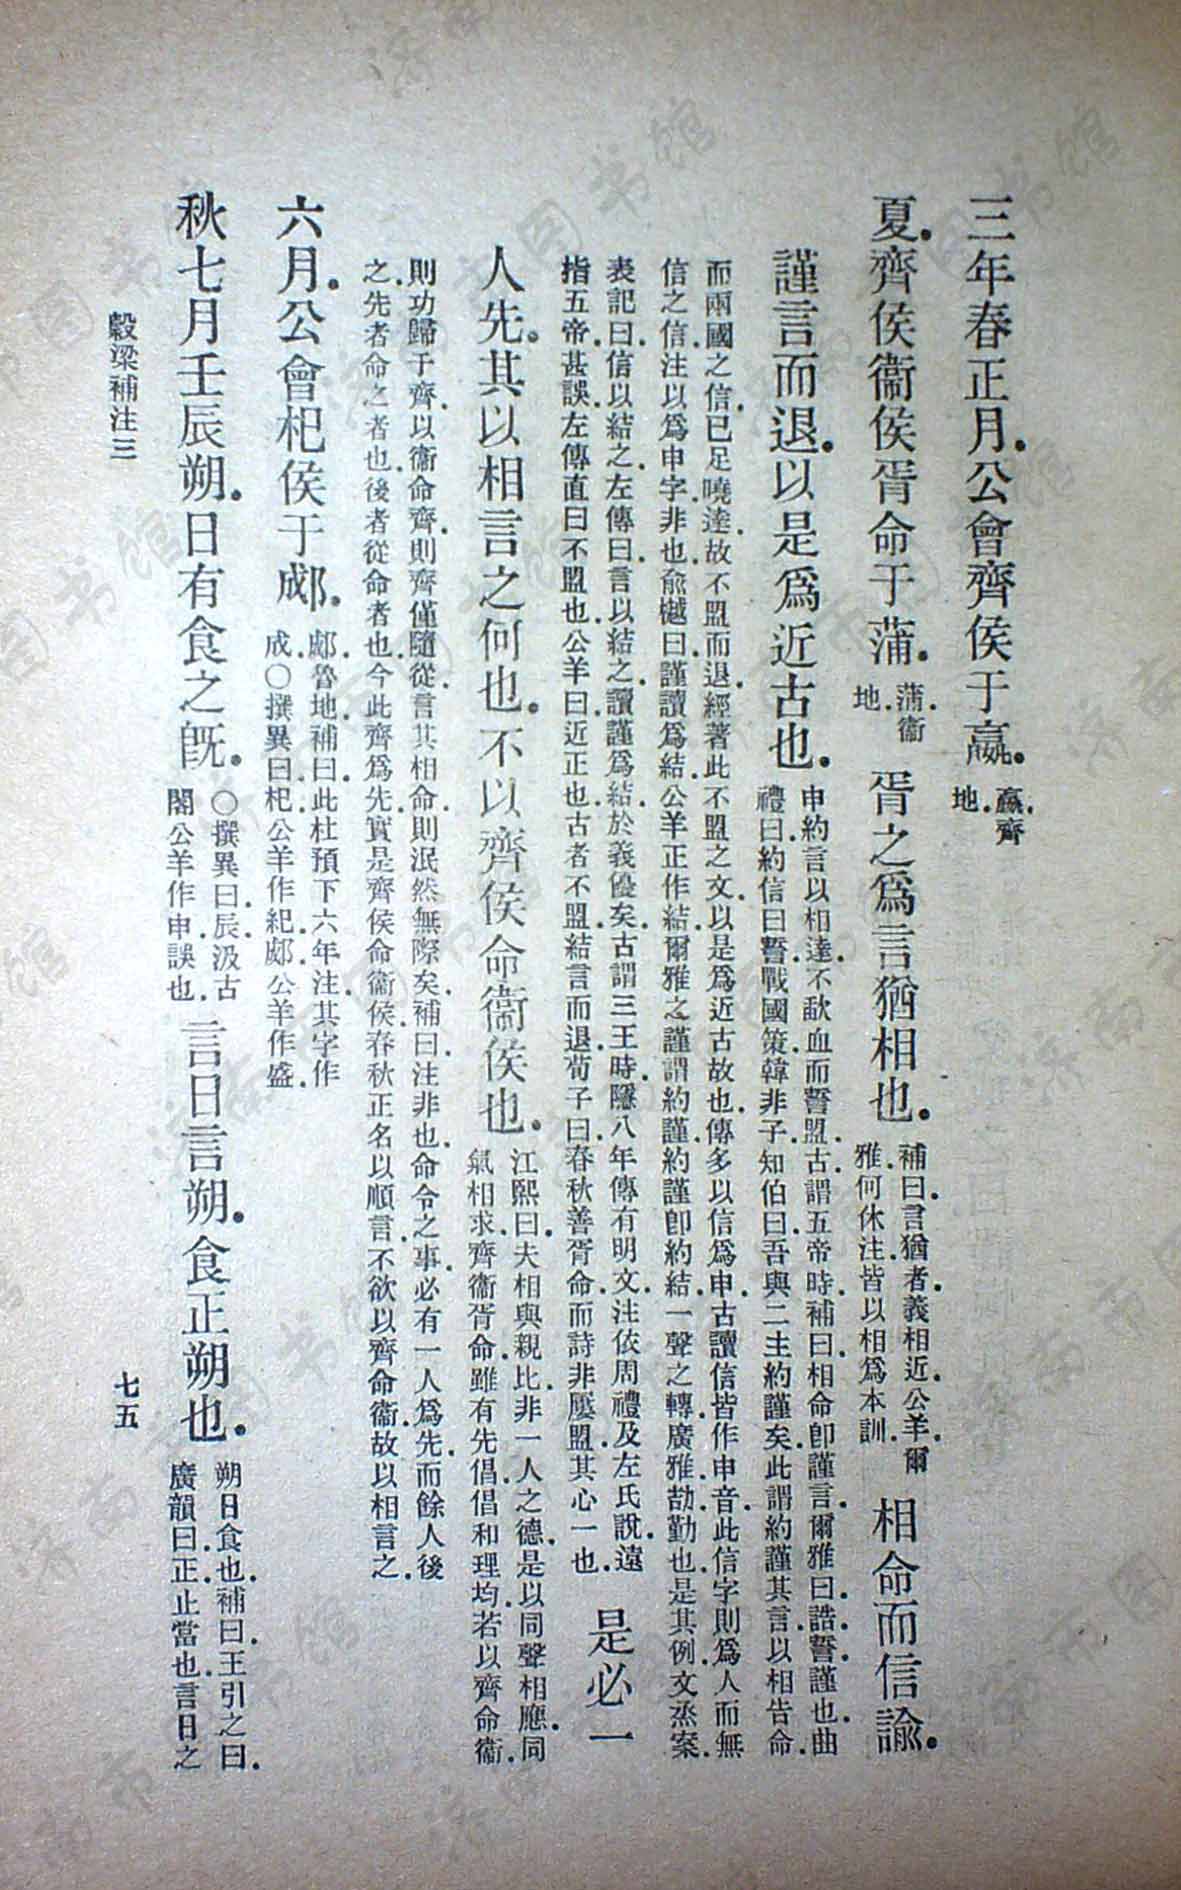 三年春正月.公會齊侯于嬴.嬴.齊
地.
夏.齊侯衞侯胥命于蒲.蒲.衞
地.胥之爲言猶相也.補曰.言猶者.義相近.公羊.爾
雅.何休注.皆以相爲本訓.相命而信諭.
謹言而退.以是爲近古也.申約言以相達.不歃血而誓盟.古謂五帝時.補曰.相命卽謹言.爾雅曰.誥誓.謹也.曲
禮曰.約信曰誓.戰國策.韓非子.知伯曰.吾與二主約謹矣.此謂約謹其言.以相告命.
而兩國之信.已足曉達.故不盟而退.經著此不盟之文.以是爲近古故也.傳多以信爲申.古讀信皆作申音.此信字則爲人而無
信之信.注以爲申字.非也.兪樾曰.謹讀爲結.公羊正作結.爾雅之謹.謂約謹.約謹卽約結.一聲之轉.廣雅.劼.勤也.是其例.文烝案.
表記曰.信以結之.左傳曰.言以結之.讀謹爲結.於義優矣.古謂三王時.隱八年傳有明文.注依周禮及左氏說.遠
指五帝.甚誤.左傳直曰不盟也.公羊曰.近正也.古者不盟.結言而退.荀子曰.春秋善胥命.而詩非屢盟.其心一也.是必一
人先.其以相言之何也.不以齊侯命衞侯也.江熙曰.夫相與親比.非一人之德.是以同聲相應.同
氣相求.齊衞胥命.雖有先倡.倡和理均.若以齊命衞.
則功歸于齊.以衞命齊.則齊僅隨從.言其相命.則泯然無際矣.補曰.注非也.命令之事.必有一人爲先.而餘人後
之.先者命之者也.後者從命者也.今此齊爲先.實是齊侯命衞侯.春秋正名以順言.不欲以齊命衞.故以相言之.
六月.公會杞侯于郕.郕.魯地.補曰.此杜預下六年注.其字作
成.○撰異曰.杞.公羊作紀.郕.公羊作盛.
秋七月壬辰朔.日有食之旣.○撰異曰.辰.汲古
閣公羊作申.誤也.言日言朔.食正朔也.朔日食也.補曰.王引之曰.
廣韻曰.正.止當也.言日之
穀梁補注三
七五